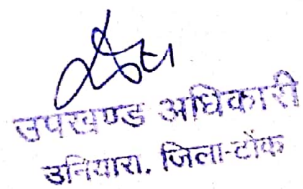 उपखण्ड अधिकारी
उनियारा. जिला-टोंक